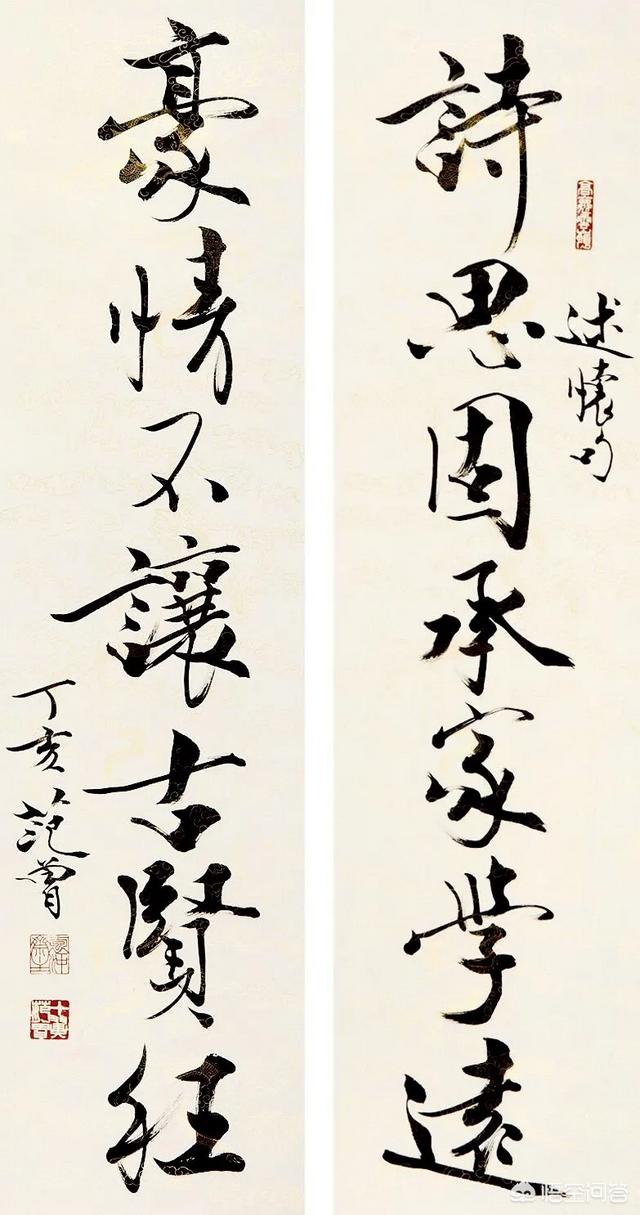 詩思固承家學遠
述懷句
豪情不讓古賢狂
丁亥范曾
悟空问答